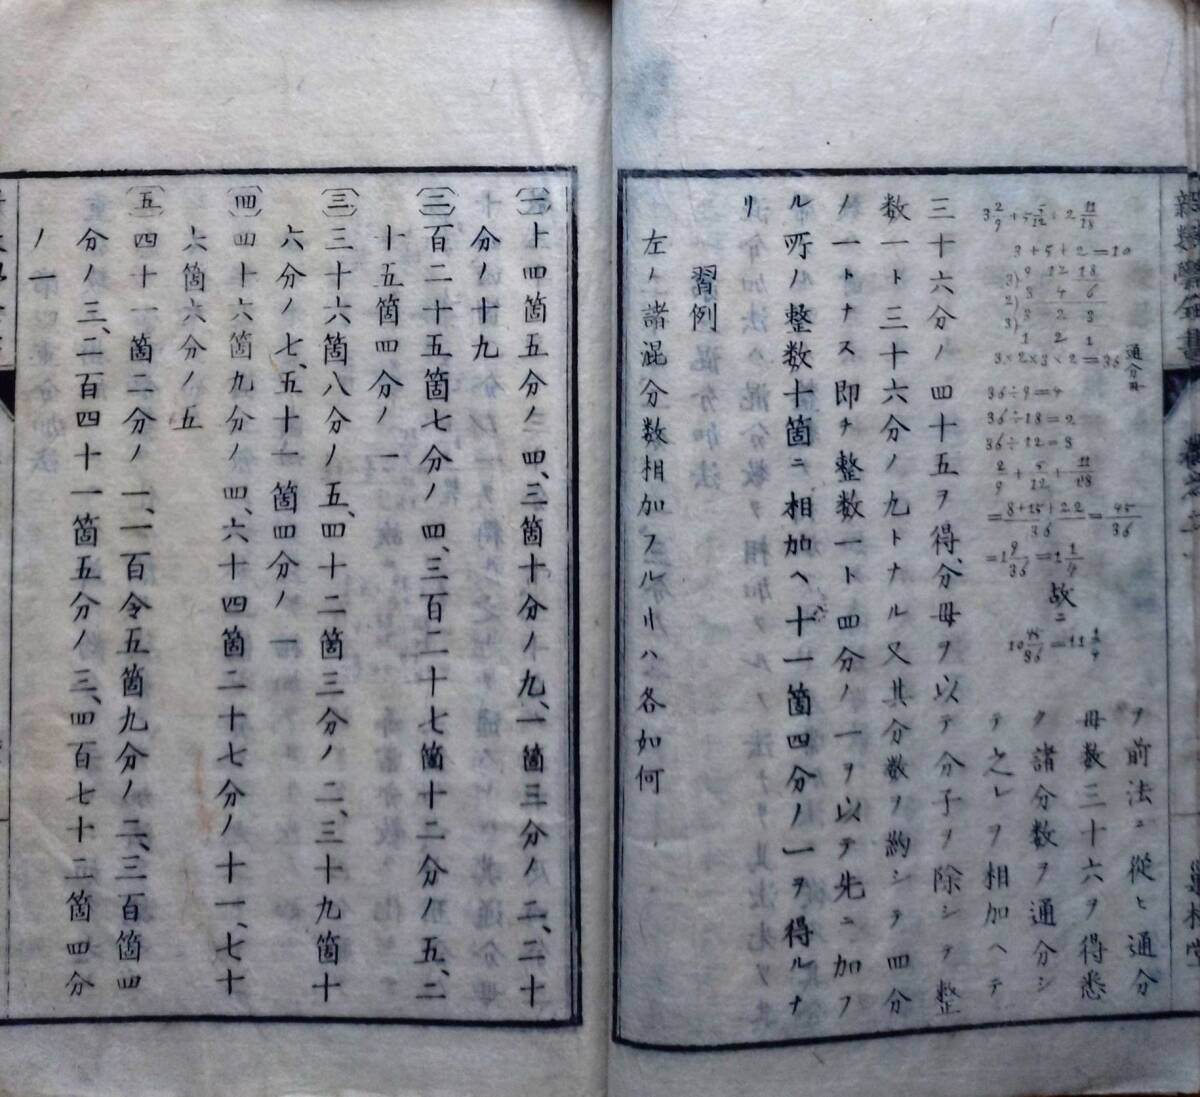 3 2/9 + 5 5/12 + 2 11/18
3+5+2=10
3) 9 12 18
2) 3 4 6
3) 3 2 3
1 2 1
3×2×3×2=36 通分母
36÷9=4
36÷18=2
36÷12=3
2/9 + 5/12 + 11/18
= 8+15+22/36 = 45/36
=1 9/36 =1 1/4
故ニ
10 45/36 =11 1/4
ヲ前法ニ從ヒ通分
母数三十六ヲ得悉
ク諸分数ヲ通分シ
テ之レヲ相加ヘテ
三十六分ノ四十五ヲ得、分母ヲ以テ分子ヲ除シテ整
数一ト三十六分ノ九トナル又其分数ヲ約シテ四分
ノ一トナス即チ整数一ト四分ノ一ヲ以テ先ニ加フ
ル所ノ整数十箇ニ相加ヘ十一箇四分ノ一ヲ得ルナ
リ
習例
左ノ諸混分数相加フル𪜈ハ各如何
〔一〕十四箇五分ノ四、三箇十分ノ九、一箇三分ノ二、二十
分ノ十九
〔二〕百二十五箇七分ノ四、三百二十七箇十二分ノ五、二
十五箇四分ノ一
〔三〕三十六箇八分ノ五、四十二箇三分ノ二、三十九箇十
六分ノ七、五十一箇四分ノ一
〔四〕四十六箇九分ノ四、六十四箇二十七分ノ十一、七十
六箇六分ノ五
〔五〕四十一箇二分ノ一、一百令五箇九分ノ二、三百箇四
分ノ三、二百四十一箇五分ノ三、四百七十二箇四分
ノ一